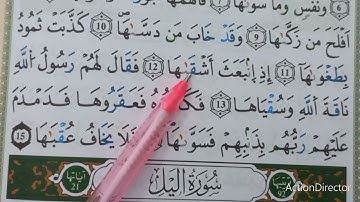 ⑥ وَنَفْسٍ وَمَا سَوّٰىهَا ⑦
اَفْلَحَ مَنْ زَكّٰىهَا ⑨ وَقَدْ خَابَ مَنْ دَسّٰىهَا ⑩ كَذَّبَتْ ثَمُودُ
بِطَغْوٰىهَا ⑪ اِذِ انْبَعَثَ اَشْقٰىهَا ⑫ فَقَالَ لَهُمْ رَسُولُ اللّٰهِ
نَاقَةَ اللّٰهِ وَسُقْيَاهَا ⑬ فَعَقَرُوهَا فَدَمْدَمَ
عَلَيْهِمْ رَبُّهُمْ بِذَنْبِهِمْ فَسَوّٰىهَا فَلَا يَخَافُ عُقْبٰىهَا ⑮
اٰيَاتُهَا 21
سُورَةُ الَّيْلِ
92
ActionDirector